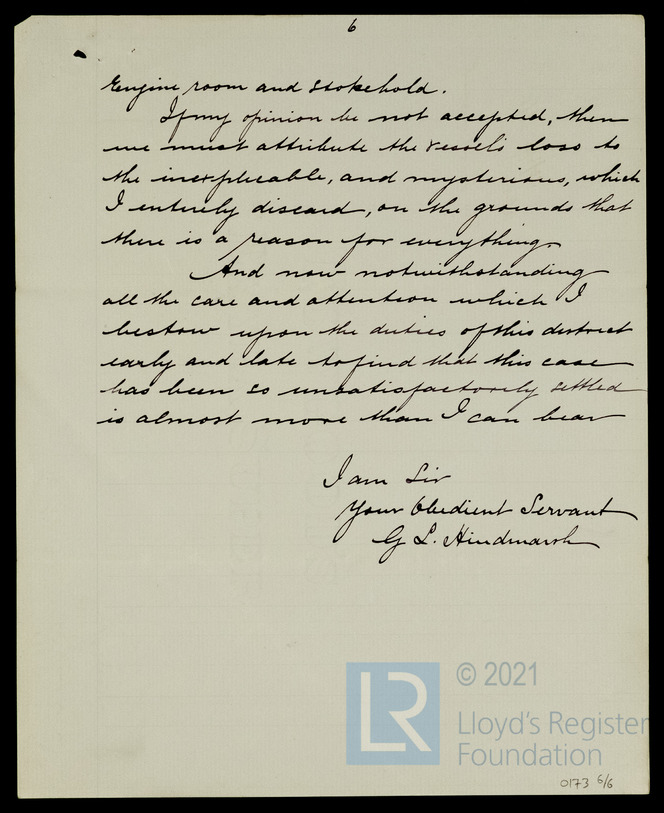 6
Engine room and stokehold.
If my opinion be not accepted, then
we must attribute the vessels loss to
the inexplicable, and mysterious, which
I entirely discard, on the grounds that
there is a reason for everything
And now notwithstanding
all the care and attention which I
bestow upon the duties of this district
early and late to find that this case
has been so unsatisfactorily settled
is almost more than I can bear
I am Sir
Your Obedient Servant
G L. Hindmarsh
LR
© 2021
Lloyd's Register
Foundation
0173 6/6